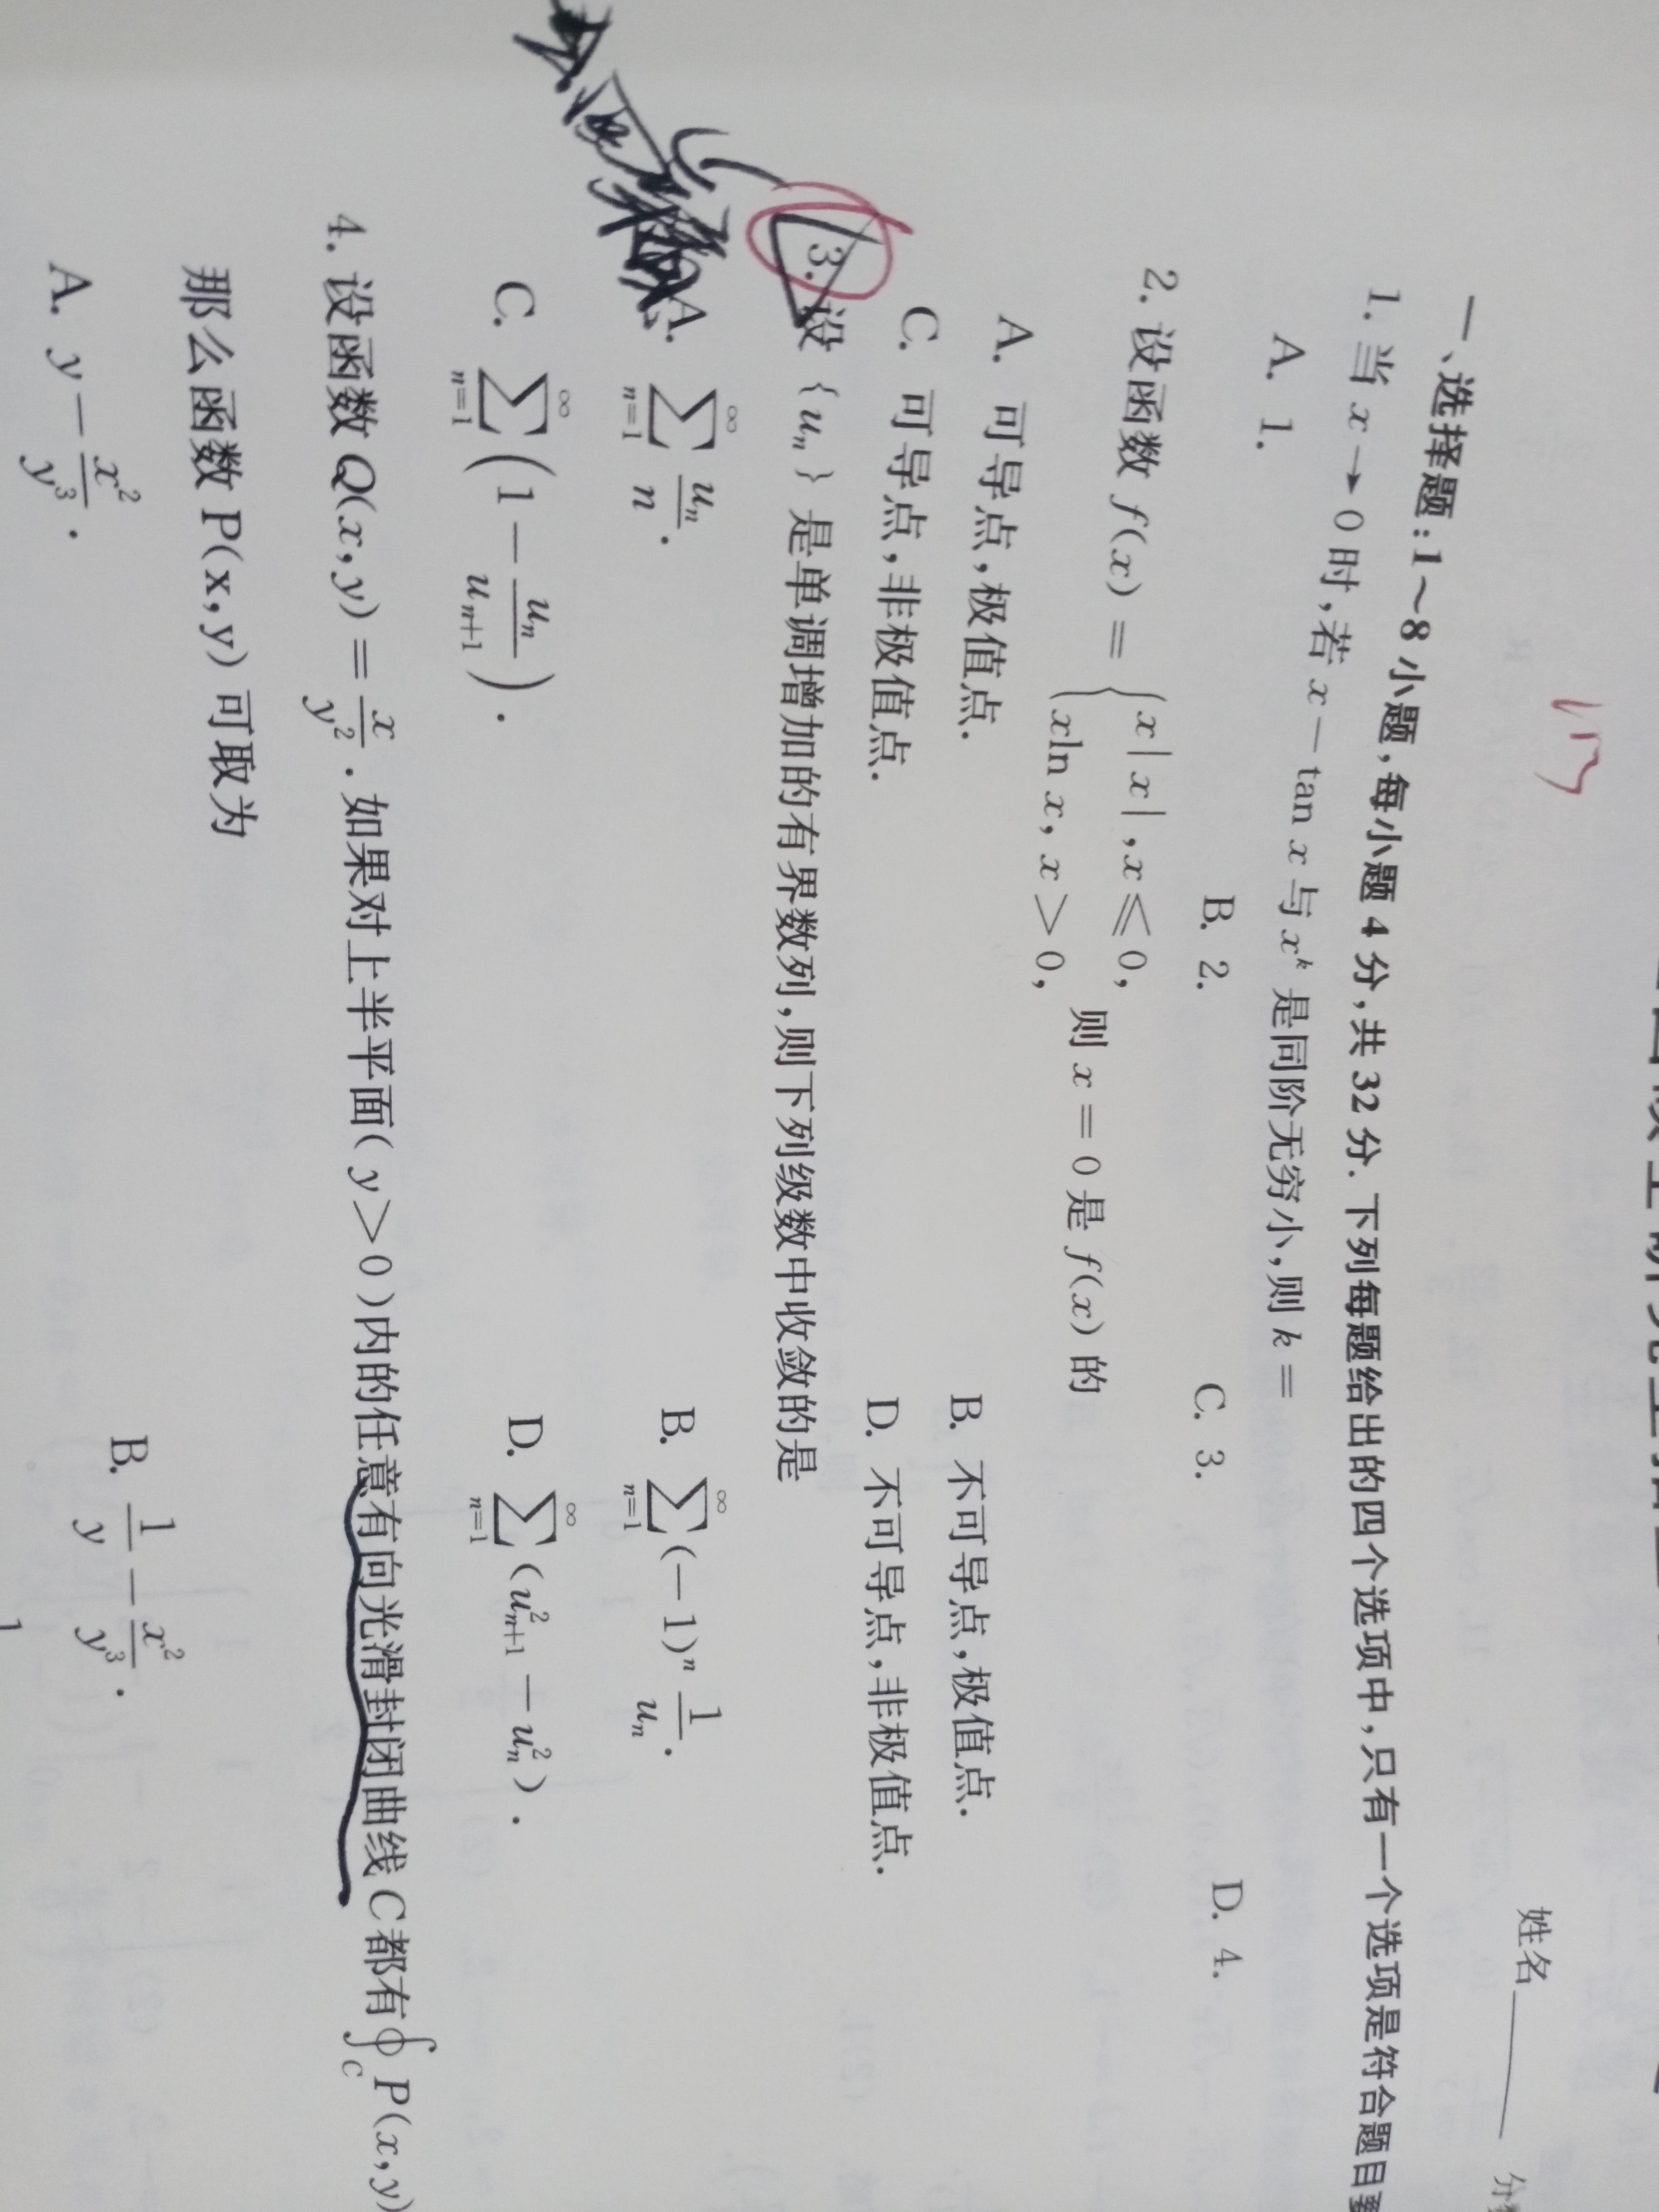 姓名
一、选择题:1～8小题,每小题4分,共32分.下列每题给出的四个选项中,只有一个选项是符合题目要
1. 当 x→0 时,若 x－tan x 与 x^k 是同阶无穷小,则 k＝
A. 1. B. 2. C. 3. D. 4.
2. 设函数 f(x)＝{x|x|,x≤0, xln x,x＞0, 则 x＝0 是 f(x) 的
A. 可导点,极值点. B. 不可导点,极值点.
C. 可导点,非极值点. D. 不可导点,非极值点.
3. 设{u_n}是单调增加的有界数列,则下列级数中收敛的是
A. ∑_{n=1}^{∞} u_n/n. B. ∑_{n=1}^{∞} (－1)^n 1/u_n.
C. ∑_{n=1}^{∞} (1－u_n/u_{n+1}). D. ∑_{n=1}^{∞} (u_{n+1}^2－u_n^2).
4. 设函数 Q(x,y)＝x/y^2.如果对上半平面(y＞0)内的任意有向光滑封闭曲线 C 都有∮_C P(x,y)
那么函数 P(x,y) 可取为
A. y－x^2/y^3. B. 1/y－x^2/y^3.